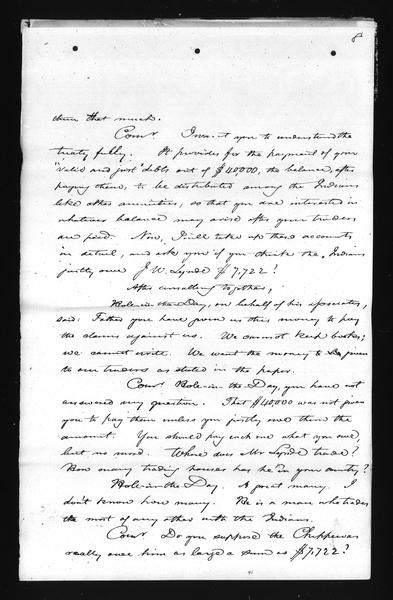 8
them that much.
Comr I want you to understand the
treaty fully. It provides for the payment of your
"valid and just" debts out of $40,000, the balance, after
paying them, to be distributed among the Indians
like other annuities, so that you are interested in
whatever balance may arise after your traders
are paid. Now, I will take up these accounts
in detail, and ask you if you think the Indians
justly owe J. W. Lynde $7,722?
After consulting together,
Hole-in-the-Day, on behalf of his associates,
said: Father you have given us this money to pay
the claims against us. We cannot keep books;
we cannot write. We want the money to be given
to our traders as stated in the paper.
Comr Hole-in-the-Day, you have not
answered my question. That $40,000 was not given
you to pay them unless you justly owe them the
amount. You should pay each one what you owe,
but no more. Where does Mr Lynde trade?
How many trading houses has he in your country?
Hole-in-the-Day. A great many. I
don't know how many. He is a man who trades
the most of any other with the Indians.
Comr Do you suppose the Chippewas
really owe him as large a sum as $7,722?